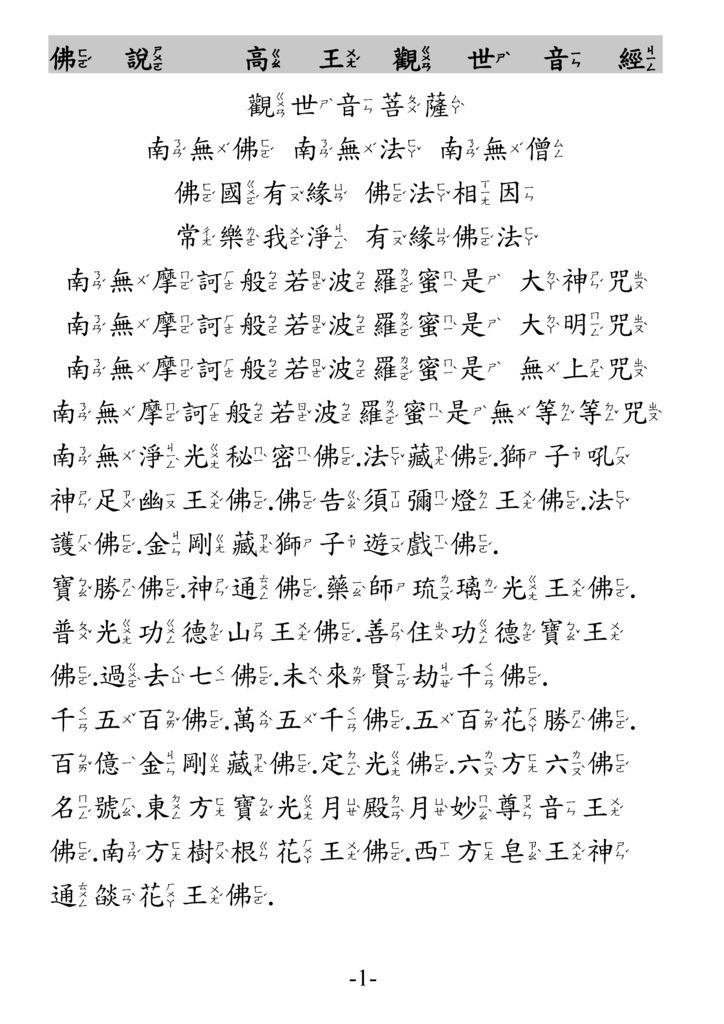 佛說 高王觀世音經
觀世音菩薩
南無佛 南無法 南無僧
佛國有緣 佛法相因
常樂我淨 有緣佛法
南無摩訶般若波羅蜜是 大神咒
南無摩訶般若波羅蜜是 大明咒
南無摩訶般若波羅蜜是 無上咒
南無摩訶般若波羅蜜是無等等咒
南無淨光秘密佛.法藏佛.獅子吼
神足幽王佛.佛告須彌燈王佛.法
護佛.金剛藏獅子遊戲佛.
寶勝佛.神通佛.藥師琉璃光王佛.
普光功德山王佛.善住功德寶王
佛.過去七佛.未來賢劫千佛.
千五百佛.萬五千佛.五百花勝佛.
百億金剛藏佛.定光佛.六方六佛
名號.東方寶光月殿月妙尊音王
佛.南方樹根花王佛.西方皂王神
通燄花王佛.
-1-